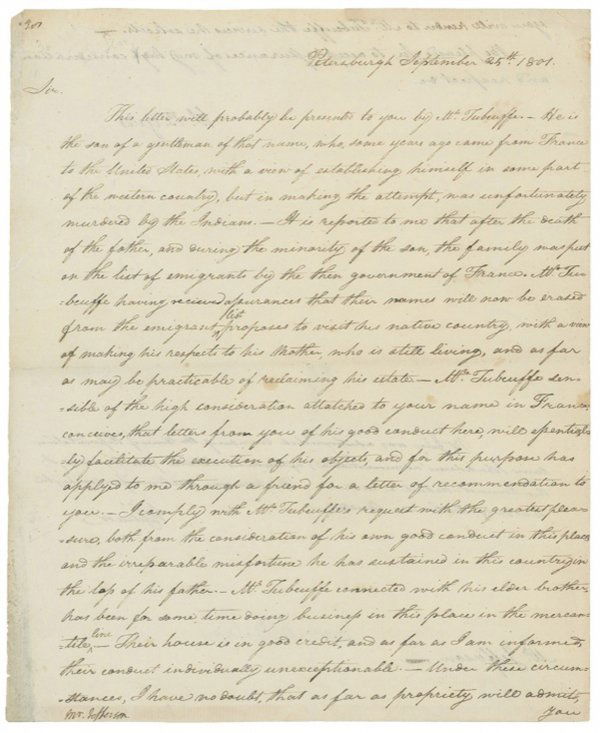 Petersburgh September 25th. 1801.
Sir.
This letter will probably be presented to you by Mr. Tubeuffe.— He is
the son of a gentleman of that name, who, some years ago came from France
to the United States, with a view of establishing himself in some part
of the western country, but in making the attempt, was unfortunately
murdered by the Indians.— It is reported to me that after the death
of the father, and during the minority of the son, the family was put
on the list of emigrants by the then government of France. Mr. Tu-
beuffe having recieved assurances that their names will now be erased
from the emigrant list, proposes to visit his native country, with a view
of making his respects to his Mother, who is still living, and as far
as may be practicable of reclaiming his estate— Mr. Tubeuffe sen-
sible of the high consideration attatched to your name in France,
conceives, that letters from you of his good conduct here, will essential-
ly facilitate the execution of his objects, and for this purpose has
applyed to me through a friend for a letter of recommendation to
you.— I comply with Mr. Tubeuffe's request with the greatest plea-
sure, both from the consideration of his own good conduct in this place
and the irreparable misfortune he has sustained in this country in
the loss of his father.— Mr. Tubeuffe connected with his elder brother,
has been for some time doing business in this place in the mercan-
tile line.— Their house is in good credit, and as far as I am informed,
their conduct individually unexceptionable.— Under these circum-
stances, I have no doubt, that as far as propriety will admit,
Mr. Jefferson. you